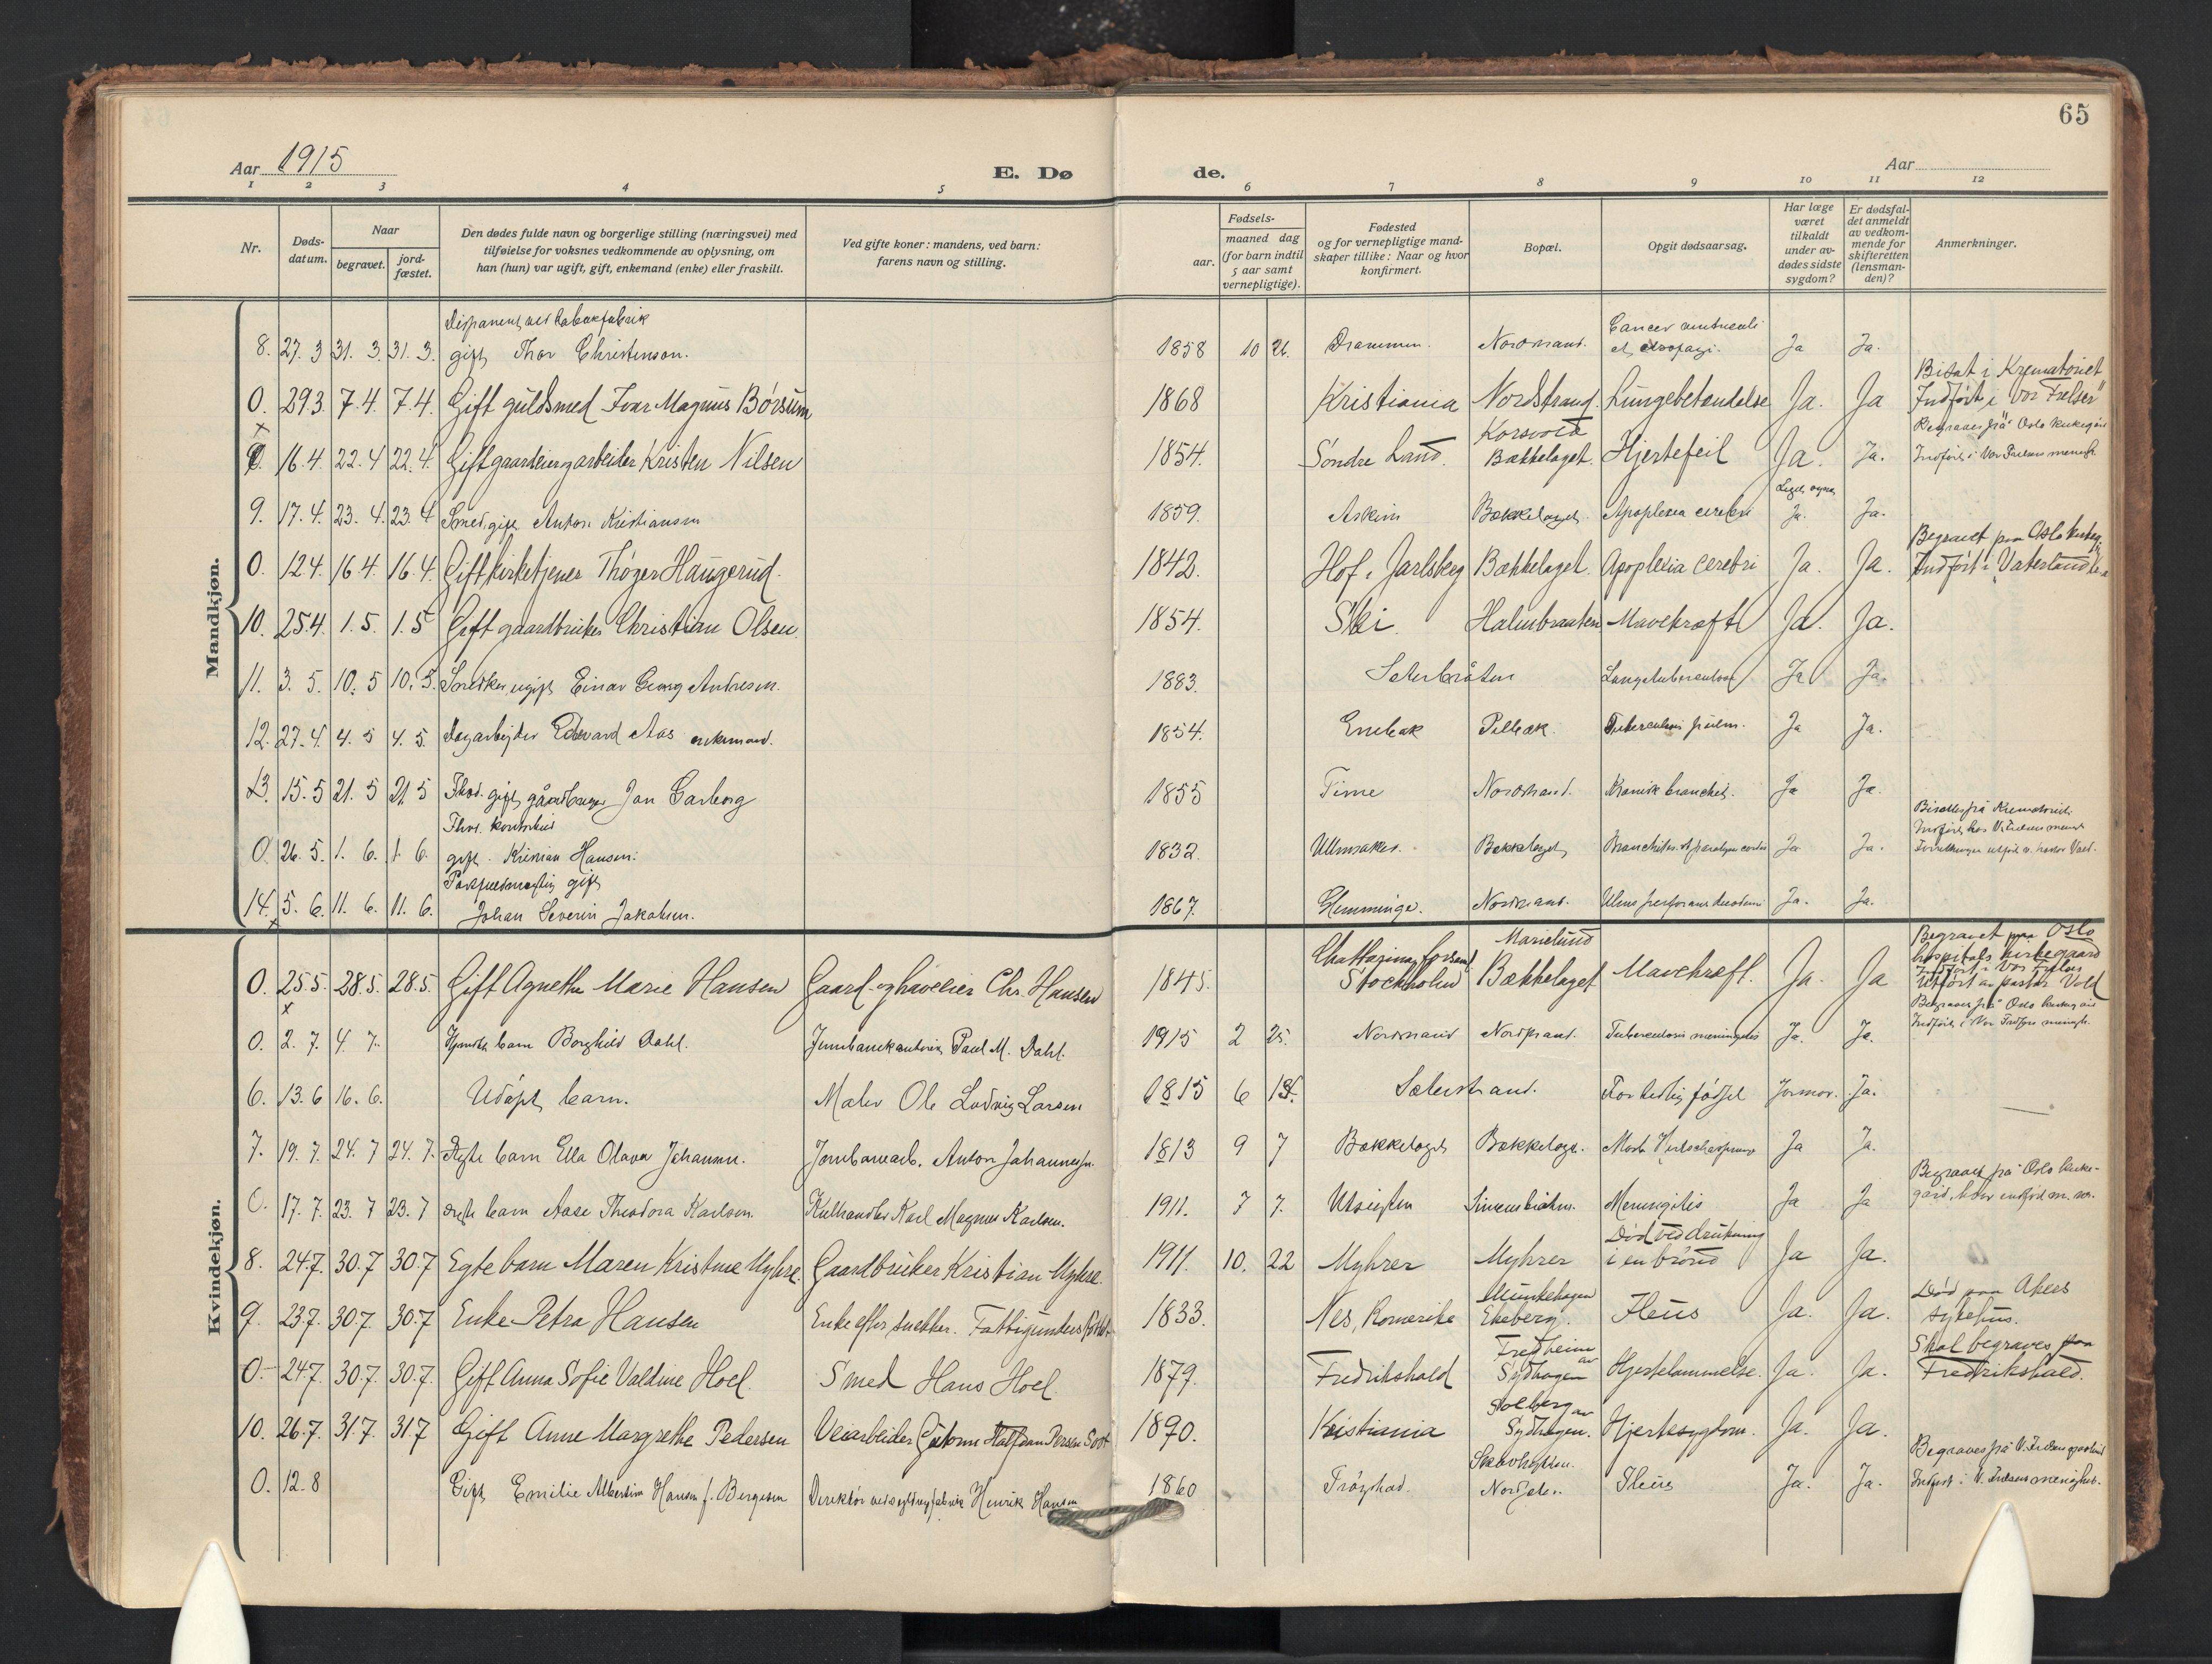 65
Aar 1915
E. Døde.
Aar
1 2 3 4 5 6 7 8 9 10 11 12
Nr.
Døds-datum.
Naar
begravet.
jord-fæstet.
Den dødes fulde navn og borgerlige stilling (næringsvei) med
tilføielse for voksnes vedkommende av oplysning, om
han (hun) var ugift, gift, enkemand (enke) eller fraskilt.
Ved gifte koner: mandens, ved barn:
farens navn og stilling.
Fødsels-
aar.
maaned dag
(for barn indtil
5 aar samt
vernepligtige).
Fødested
og for vernepligtige mand-
skaper tillike: Naar og hvor
konfirmert.
Bopæl.
Opgit dødsaarsag.
Har læge
været
tilkaldt
under av-
dødes sidste
sygdom?
Er dødsfal-
det anmeldt
av vedkom-
mende for
skifteretten
(lensman-
den)?
Anmerkninger.
Mandkjøn.
Disponent ved tobakfabrik
8. 27. 3 31. 3. 31. 3. gift Thor Christenson. 1858 10 26. Drammen. Nordstrand. Cancer ventriculi Ja Ja.
Bisat i Krematoriet
0. 29.3. 7.4. 7.4. Gift guldsmed Ivar Magnus Børsum 1868 Kristiania Nordstrand. Lungebetændelse Ja. Ja Indført i Vor Frelser
Begraves på Oslo kirkegård
Korsvold
0. 16.4. 22.4 22.4. Gift gaardeier og arbeider Kristen Nilsen 1854. Søndre Land. Bækkelaget. Hjertefeil Ja. Ja. Indført i Vor Frelsers menigh.
9. 17.4. 23.4. 23.4 Smed, gift Anton Kristiansen 1859. Askim Bækkelaget. Apoplexia cerebri Ja. Ja.
Begravet paa Oslo kirkeg.
0. 12.4. 16.4. 16.4. Gift kirketjener Thøger Haugerud. 1842. Hof i Jarlsberg Bækkelaget. Apoplexia cerebri Ja. Ja. Indført i Vaterland
10. 25.4. 1.5. 1.5 Gift gaardbruker Christian Olsen. 1854. Ski. Holmbraaten Mavekræft Ja. Ja.
11. 3. 5. 10. 5 10. 5. Snedker, ugift Einar Georg Andresen. 1883. Seterbråten Lungetuberculose Ja Ja.
12. 27.4. 4. 5 4. 5. Dagarbeider Edvard Aas enkemand. 1854. Enebak Pilbak. Tuberculosis pulm. Ja Ja.
13. 15.5 21. 5 21 5 Fhv. gift gårdbruger Jon Garborg 1855 Time Nordstrand. Kronisk bronchit. Ja Ja.
Bisættes fra Krematoriet.
0. 26. 5. 1. 6. 1. 6. gift. Kristian Hansen. 1832. Ullensaker. Bækkelaget Ja Ja.
14. 5. 6. 11. 6. 11. 6. gift Johan Severin Jakobsen. 1867. Glemminge. Nordstrand. Ulcus perforans duodeni Ja. Ja.
Kvindekjøn.
Marielund
Begravet paa Oslo
hospitals kirkegaard
Indført i Vor Frelser
Utført av pastor Vold
0. 25.5. 28.5. 28.5. Gift Agnethe Marie Hansen Gaard- og haveeier Chr. Hansen 1845. Stockholm Bækkelaget Mavekræft. Ja. Ja
Begraves på Oslo kirkegård
0. 2. 7. 4. 7. barn Borghild Dahl. Paul M. Dahl. 1915 2 25. Nordstrand Nordstrand. Tuberculosis meningitis Ja. Ja. Indført i Vor Frelsers menigh.
6. 13. 6 16. 6. Udøpt barn. Maler Ole Ludvig Larsen 1815 6 13. Sæterstrand. For tidlig fødsel Jormor. Ja.
7. 19. 7. 24. 7 24. 7. Ægte barn Ella Olava Johannesen. Jernbanearb. Anton Johannesen. 1813 9 7 Bækkelaget Bækkelaget. Ja Ja.
Begravet på Oslo kirke-
0. 17. 7. 23. 7 23. 7 ægte barn Aase Theodora Karlsen. Kulhandler Karl Magnus Karlsen. 1911. 7 7. Utsigten Meningitis Ja Ja
Død ved drukning
8. 24.7. 30.7 30.7 Egte barn Maren Kristine Myhre. Gaardbruker Kristian Myhre. 1911. 10. 22 Myhrer Myhrer i en brønd Ja Ja.
Munkehagen
Død paa Akers
9. 23.7. 30.7. 30.7 Enke Petra Hansen Enke efter snekker. Fattigunderstøttet. 1833. Nes, Romerike Ekeberg. Ileus Ja. Ja. sykehus.
Fredheim av
Skal begraves paa
0. 24.7. 30.7. 30.7. Gift Anna Sofie Valdine Hoel. Smed Hans Hoel. 1879. Fredrikshald Sydhagen Hjertelammelse. Ja. Ja. Fredrikshald.
Solberg av
10. 26.7. 31.7. 31.7 Gift Anne Margrethe Pedersen Veiarbeider 1890. Kristiania Sydhagen. Hjertesygdom. Ja. Ja.
0. 12.8 Gift Emilie Albertine Hansen f. Bergesen Direktør Henrik Hansen 1860 Trøgstad. Ileus Ja. Ja. Indført i V. Frelsers menighet.